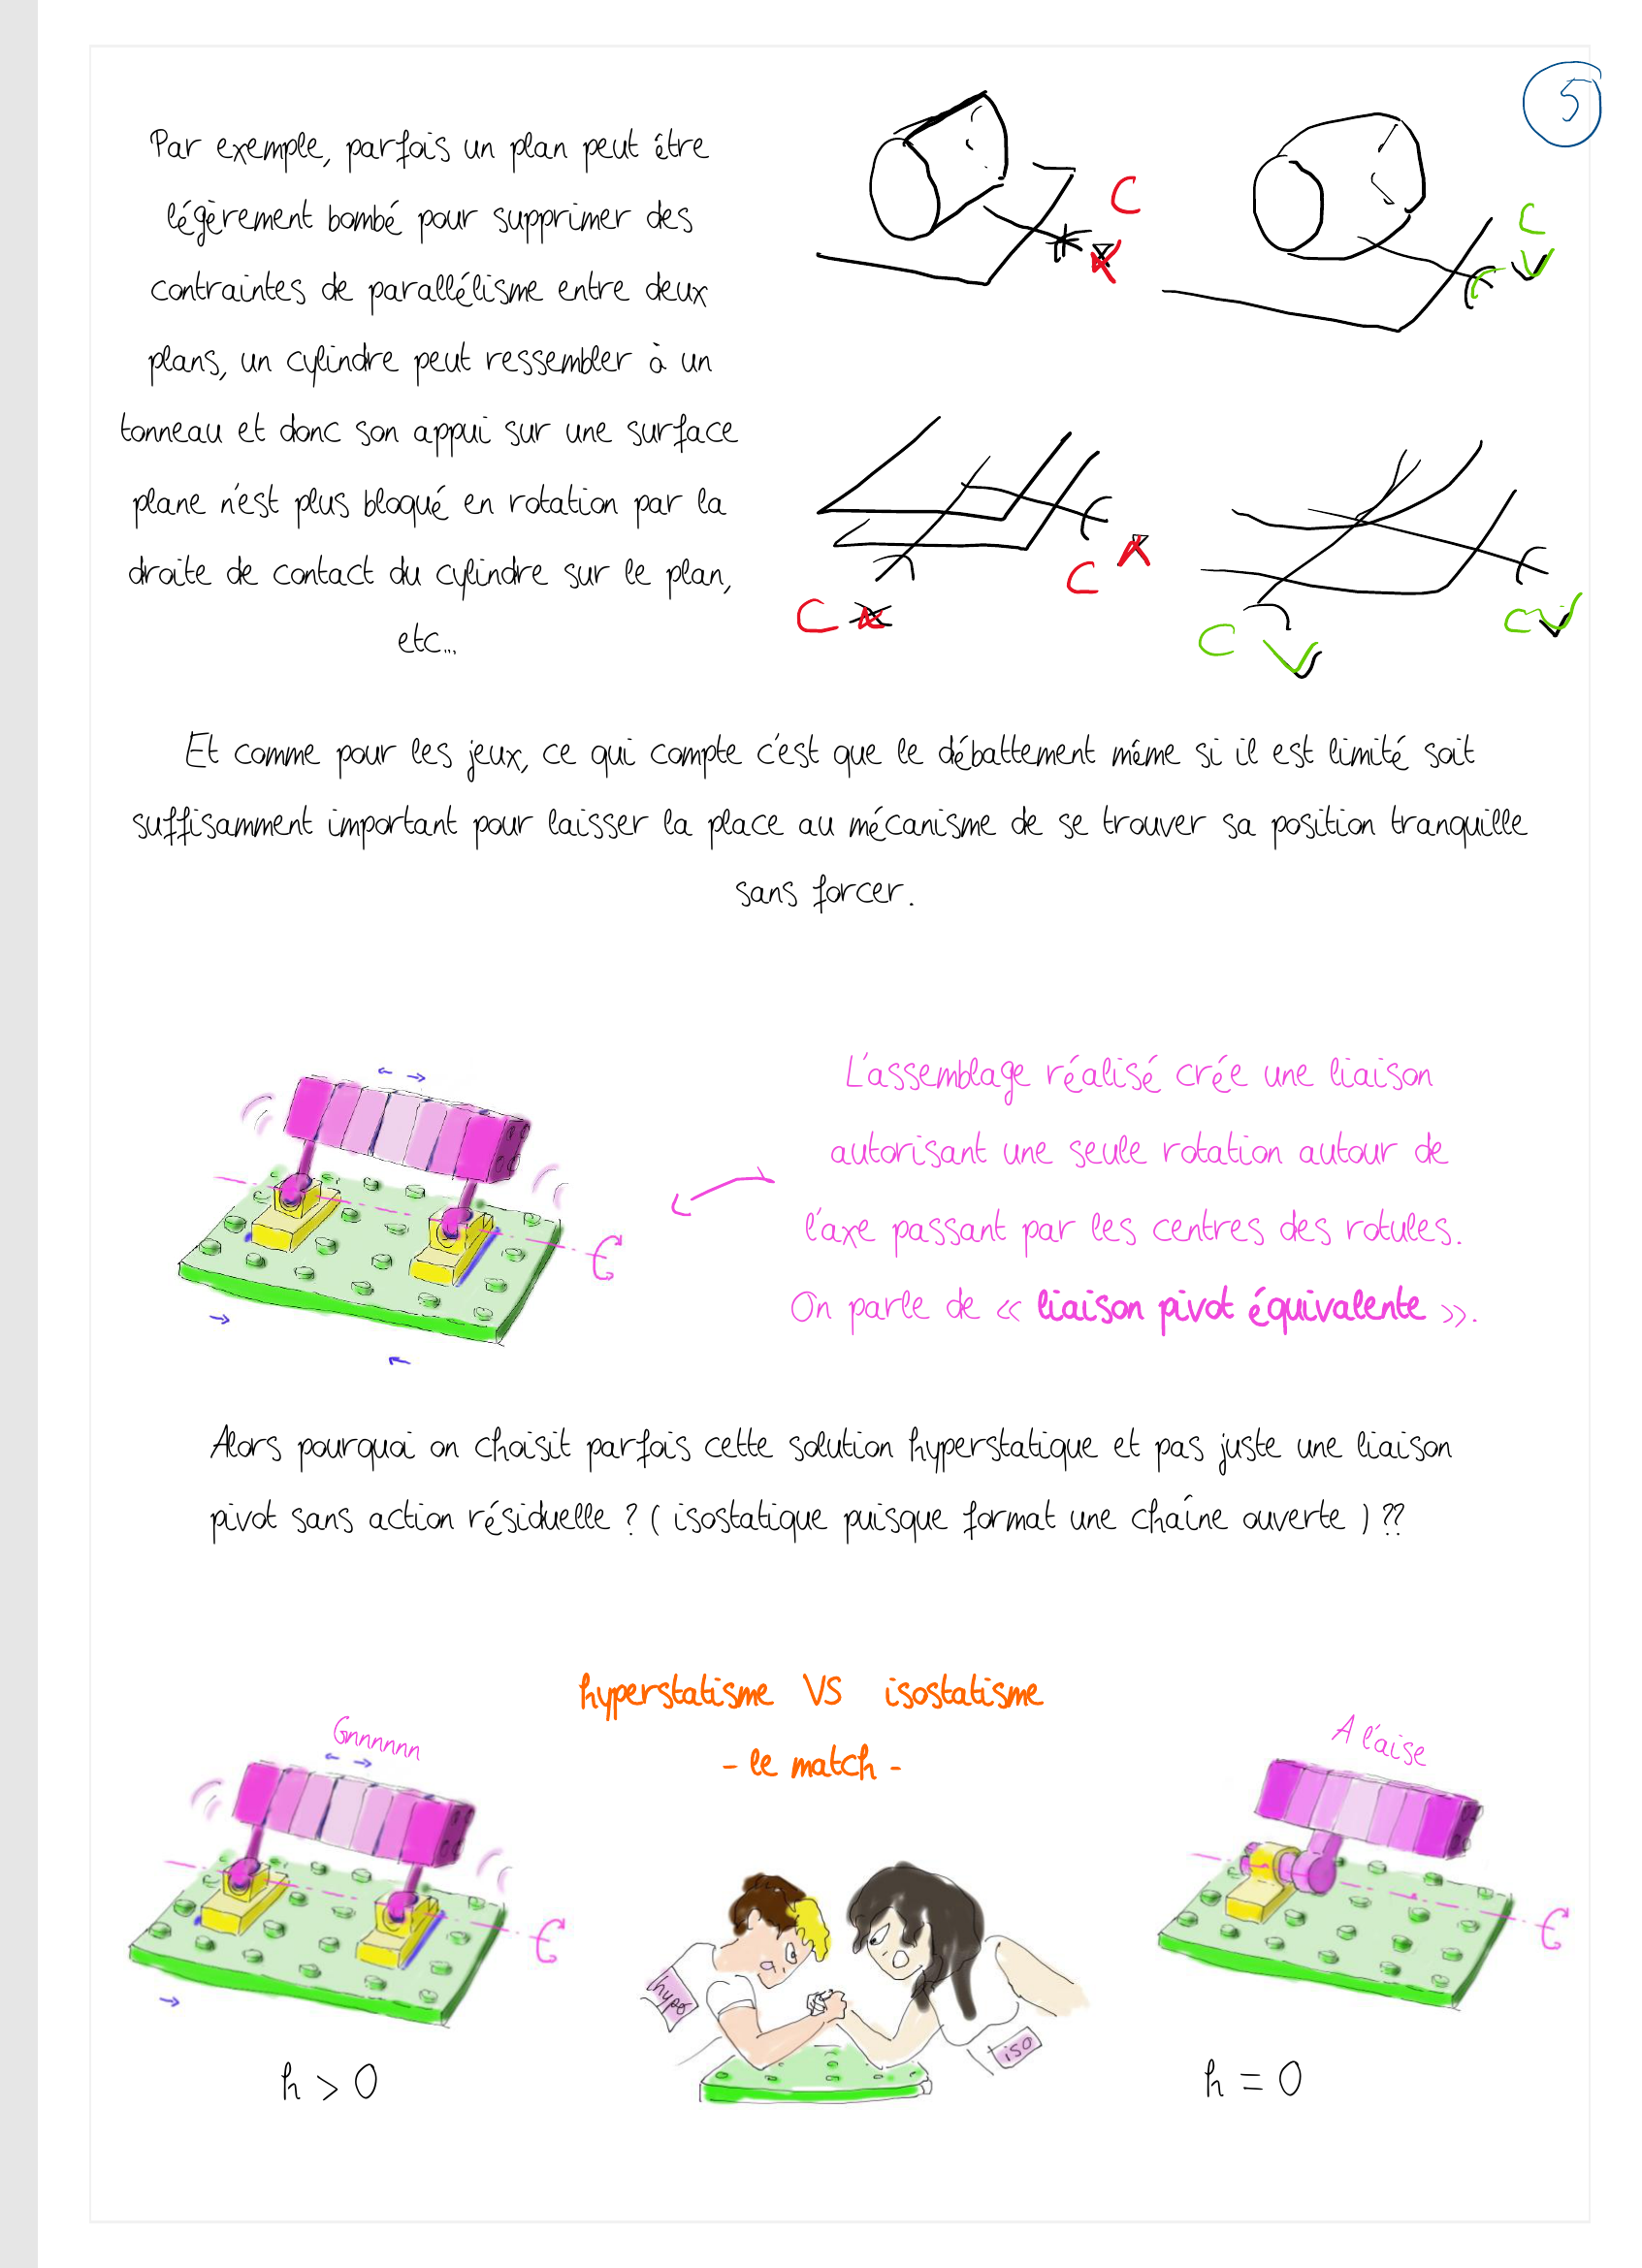 5
Par exemple, parfois un plan peut être
légèrement bombé pour supprimer des
contraintes de parallélisme entre deux
plans, un cylindre peut ressembler à un
tonneau et donc son appui sur une surface
plane n'est plus bloqué en rotation par la
droite de contact du cylindre sur le plan,
etc...
C
C
C
C
C
C
Et comme pour les jeux, ce qui compte c'est que le débattement même si il est limité soit
suffisamment important pour laisser la place au mécanisme de se trouver sa position tranquille
sans forcer.
L'assemblage réalisé crée une liaison
autorisant une seule rotation autour de
l'axe passant par les centres des rotules.
On parle de « liaison pivot équivalente ».
Alors pourquoi on choisit parfois cette solution hyperstatique et pas juste une liaison
pivot sans action résiduelle ? ( isostatique puisque format une chaîne ouverte ) ??
hyperstatisme VS isostatisme
- le match -
Gnnnnnn
A l'aise
hypo
iso
h > 0
h = 0